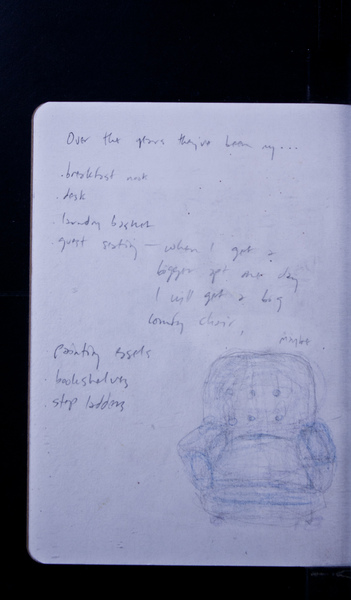 Over the years they've been my...
. breakfast nook
. desk
. laundry basket
. guest seating — when I get a
bigger apt one day
I will get a big
comfy chair,
maybe
painting easels
. bookshelves
. step ladders